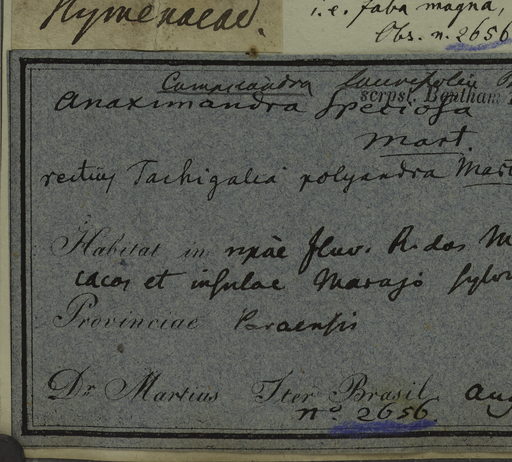 Hymenaeae.
i.e. faba magna,
Obs. n. 2656
Campsiandra laurifolia
scrps. Bentham
Anaximandra speciosa
Mart.
rectius Tachigalia polyandra Mart
Habitat in ripae fluv. R. dos M
cacos et insulae Marajó sylv
Provinciae Paraensis
Dr. Martius Iter Brasil. aug
n.o 2656.